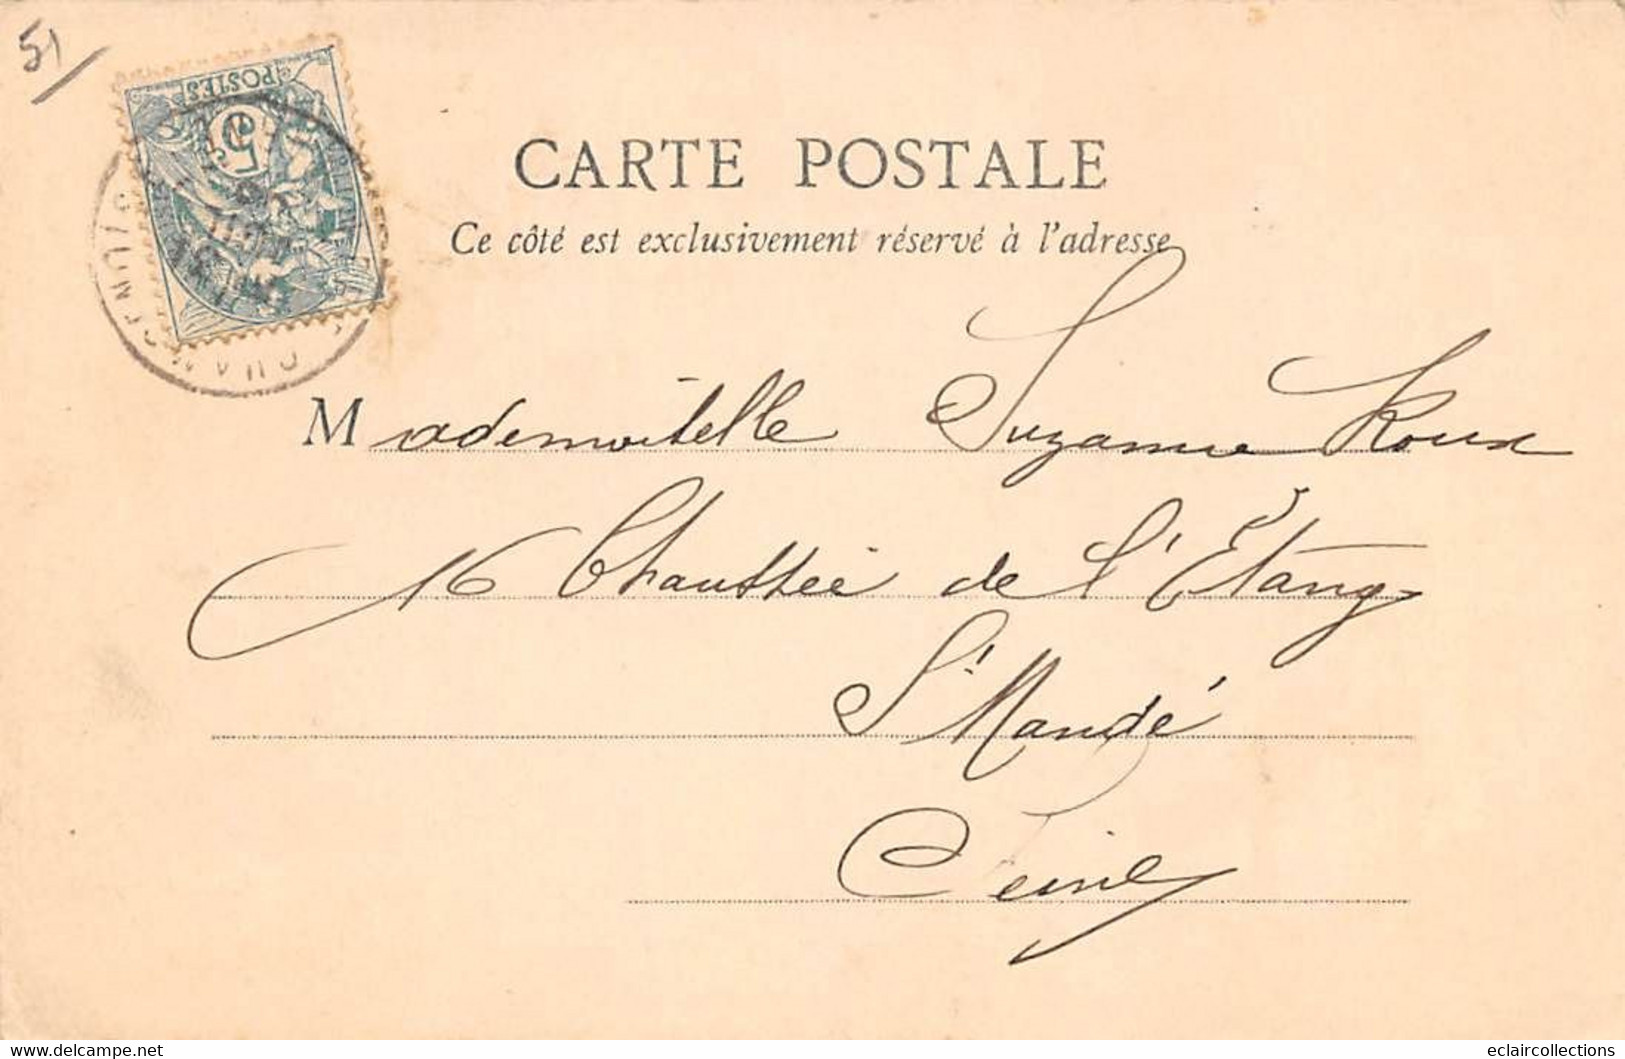 51
POSTES
5
CARTE POSTALE
Ce côté est exclusivement réservé à l'adresse
Mademoiselle Suzanne Roux
16 Chaussée de l'Étang
St Mandé
Seine
www.delcampe.net
eclaircollections